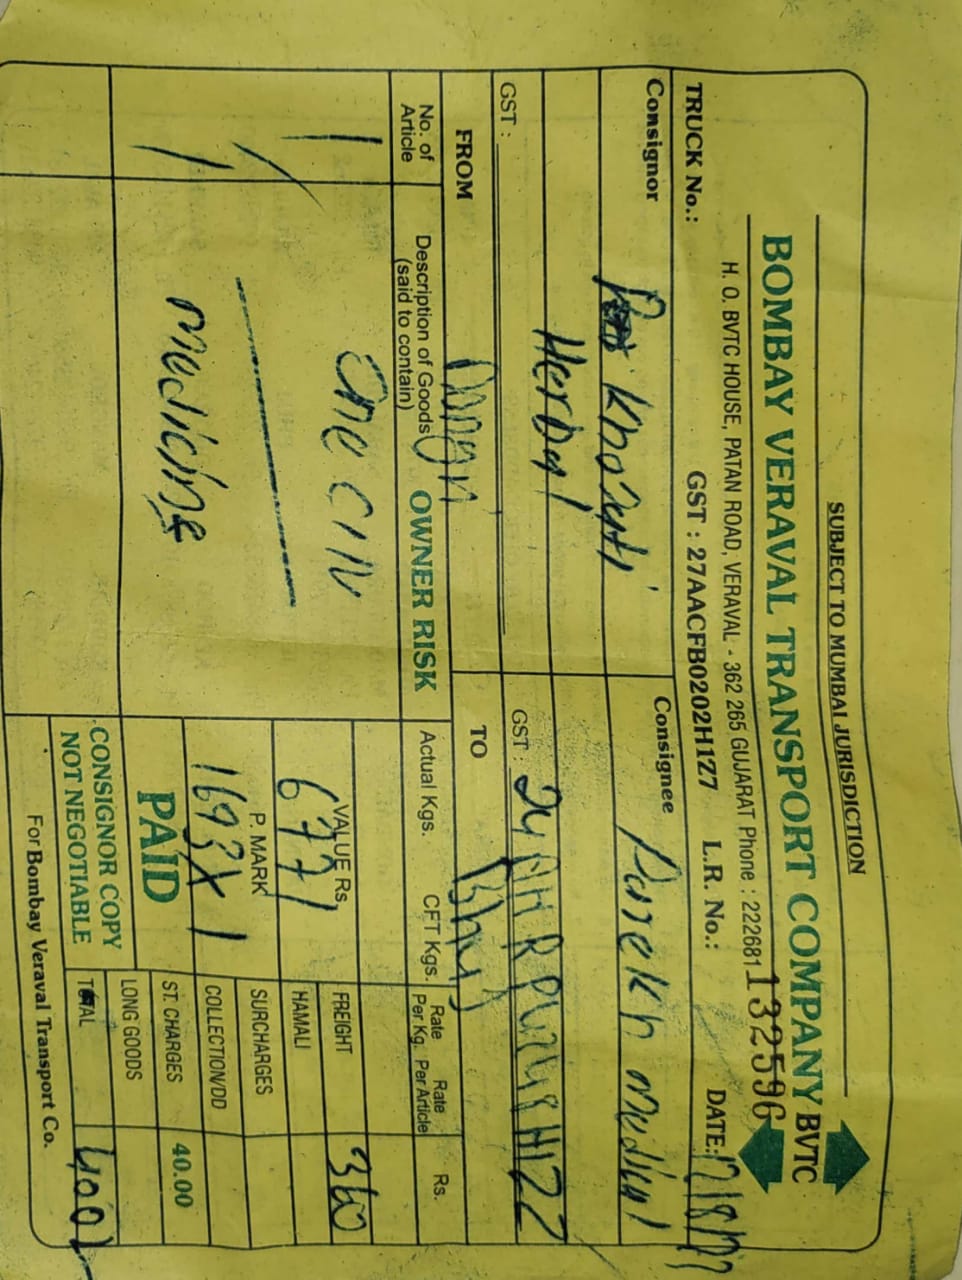 SUBJECT TO MUMBAI JURISDICTION
BOMBAY VERAVAL TRANSPORT COMPANY BVTC
H. O. BVTC HOUSE, PATAN ROAD, VERAVAL - 362 265 GUJARAT Phone : 222681
132596
TRUCK No.: GST : 27AACFB0202H1Z7 L.R. No.: DATE:
Consignor Consignee Parekh medical
Khozati
Herbal
GST : GST : 24
FROM Dongri TO Bhuj
No. of Article Description of Goods (said to contain) OWNER RISK Actual Kgs. CFT Kgs. Rate Per Kg. Rate Per Article Rs.
1 One CIN VALUE Rs. 6771 FREIGHT 360
HAMALI
P. MARK 1693X1 SURCHARGES
COLLECTION/DD
1 medicine PAID ST. CHARGES 40.00
LONG GOODS
CONSIGNOR COPY
NOT NEGOTIABLE TOTAL 400/
For Bombay Veraval Transport Co.